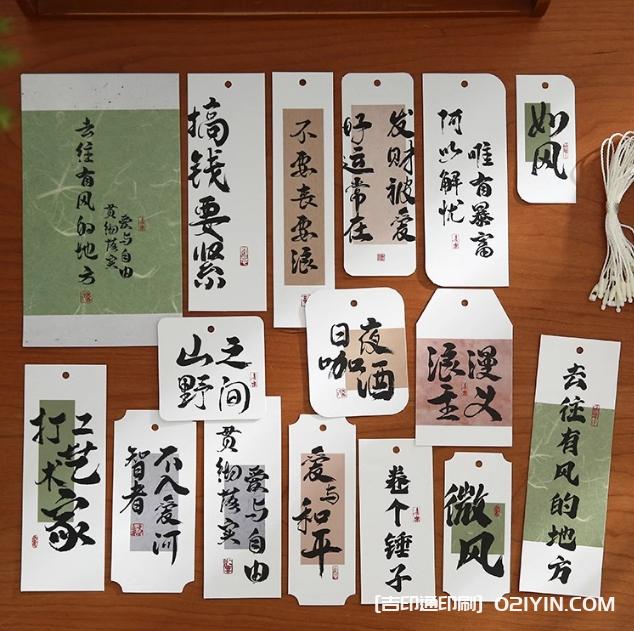 去往有风的地方
贯彻落实
爱与自由
搞钱要紧
不要丧要浪
好运常在
发财被爱
何以解忧
唯有暴富
如风
山野
之间
日咖
夜酒
浪漫
主义
打工艺术家
智者
不入爱河
贯彻落实
爱与自由
爱与和平
卷个锤子
微风
去往有风的地方
[吉印通印刷] 021YIN.COM